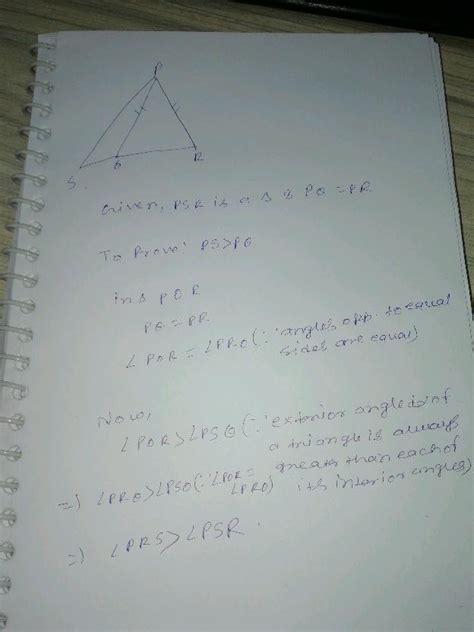 P
S.
Q
R
Given, PSR is a Δ & PQ = PR
To Prove: PS>PQ
in Δ PQR
PQ = PR
∠PQR = ∠PRQ (∵ angles opp. to equal
sides are equal)
Now,
∠PQR > ∠PSQ (∵ exterior angle of
a triangle is always
greater than each of
its interior angles)
=) ∠PRQ > ∠PSQ (∵ ∠PQR =
∠PRQ)
=) ∠PRS > ∠PSR.